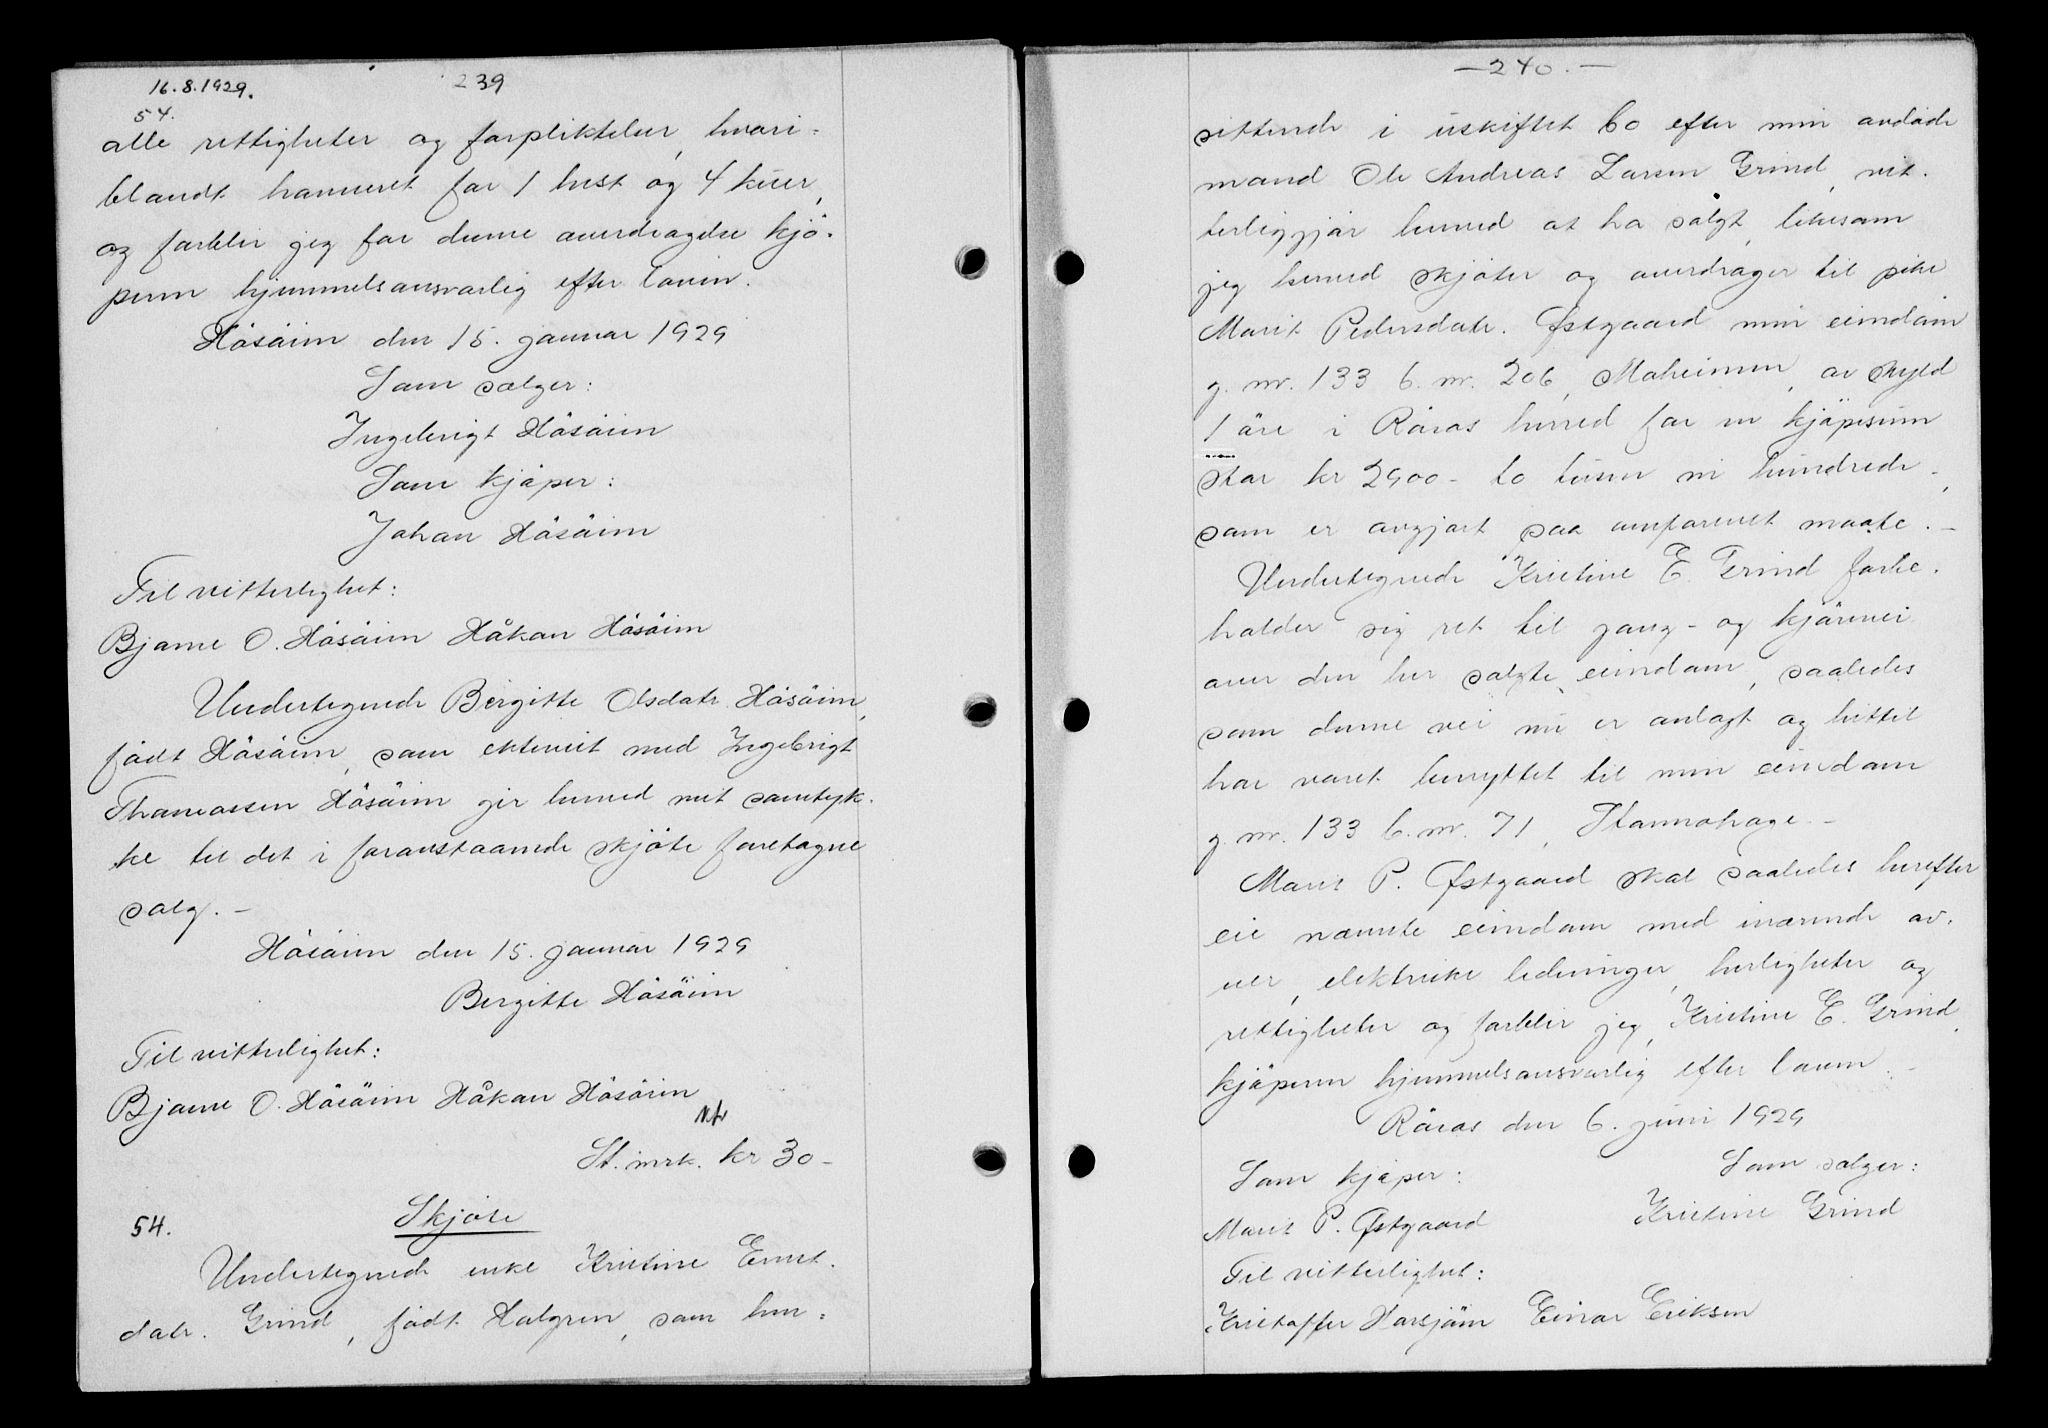 16.8.1929.
239
54.
alle rettigheter og forpliktelser, hvori-
blandt havneret for 1 hest og 4 kuer,
og forblir jeg for denne overdragelse kjø-
peren hjemmelsansvarlig efter loven.
Høsøien den 15. januar 1929
Som sælger:
Ingebrigt Høsøien
Som kjøper:
Johan Høsøien
Til vitterlighet:
Bjarne O. Høsøien Håkon Høsøien
Undertegnede Bergitte Olsdatr. Høsøien,
født Høsøien, som ektevit med Ingebrigt
Thomassen Høsøien gir herved mit samtyk-
ke til det i foranstaaende skjøte foretagne
salg. -
Høsøien den 15. januar 1929
Bergitte Høsøien
Til vitterlighet:
Bjarne O. Høsøien Håkon Høsøien
St. mrk. kr 30 -
54.
Skjøte
Undertegnede enke Kristine Ernst.
datr. Grind, født Holgren, som hen-
- 240. -
sittende i uskiftet bo efter min avdøde
mand Ole Andreas Larsen Grind, vit-
terliggjør herved at ha solgt, likesom
jeg herved skjøter og overdrager til pike
Marit Pedersdatr. Østgaard min eiendom
g. nr. 133 b. nr. 206, Moheimen, av skyld
1 øre i Røros herred for en kjøpesum
stor kr 2900 - to tusen ni hundrede -,
som er avgjort paa omforenet maate. -
Undertegnede Kristine E. Grind forbe-
holder sig ret til gang- og kjørevei
over den her solgte eiendom, saaledes
som denne vei nu er anlagt og hittil
har været benyttet til min eiendom
g. nr. 133 b. nr. 71, Hammohage. -
Marit P. Østgaard skal saaledes herefter
eie nævnte eiendom med inærende ov-
ner, elektriske ledninger, herligheter og
rettigheter og forblir jeg, Kristine E. Grind,
kjøperen hjemmelsansvarlig efter loven. -
Røros den 6. juni 1929
Som kjøper: Som sælger:
Marit P. Østgaard Kristine Grind
Til vitterlighet:
Kristoffer Harsjøen Einar Eriksen